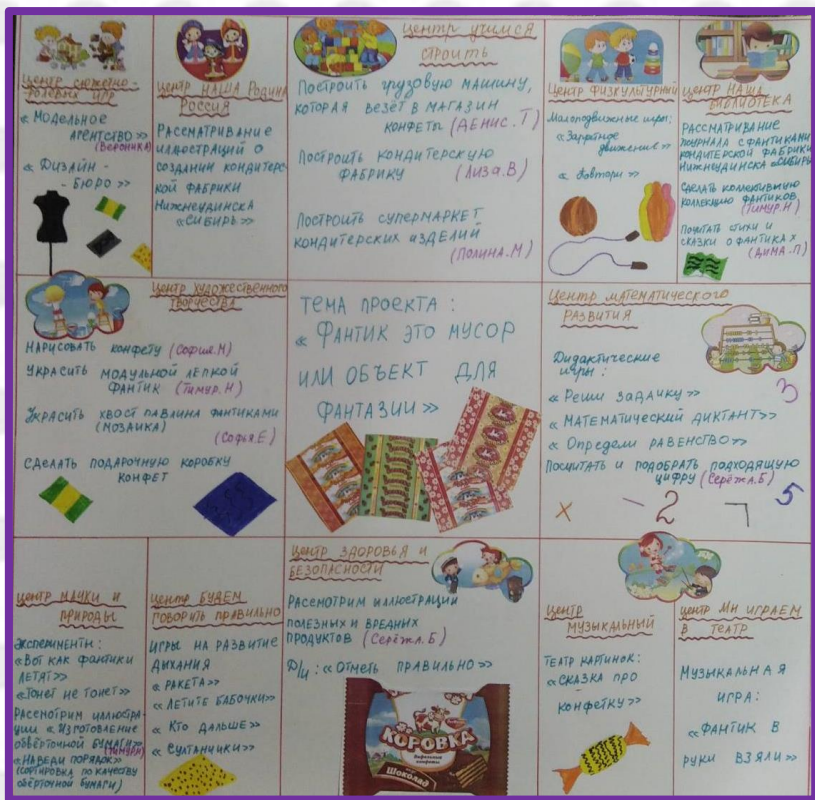 Центр сюжетно-
ролевых игр
« Модельное
агентство»
(Вероника)
« Дизайн-
- Бюро »
Центр наша Родина
Россия
Рассматривание
иллюстраций о
создании кондитерс-
кой фабрики
Нижнеудинска
«Сибирь»
Центр учимся
строить
Построить грузовую машину,
которая везёт в магазин
конфеты (Денис.Т)
Построить кондитерскую
фабрику (Лиза.В)
Построить супермаркет
кондитерских изделий
(Полина.М)
Центр физкультурный
Малоподвижные игры:
движение»
« Повтори »
Центр наша
библиотека
Рассматривание
журнала с фантиками
кондитерской фабрики
Нижнеудинска «Сибирь»
Сделать коллективную
коллекцию фантиков
(Тимур.Н)
Почитать стихи и
сказки о фантиках
(Дима.П)
Центр художественного
творчества
Нарисовать конфету (София.М)
Украсить модульной лепкой
фантик (Тимур.Н)
Украсить хвост павлина фантиками
(мозаика)
(Софья.Е)
Сделать подарочную коробку
конфет
Тема проекта:
« Фантик это мусор
или объект для
фантазии»
Центр математического
развития
Дидактические
игры:
« Реши задачку»
« Математический диктант»
« Определи равенство»
Посчитать и подобрать подходящую
цифру (Серёжа.Б)
3
× - 2 7 5
Центр науки и
природы
Эксперименты:
«Вот как фантики
летят»
«Тонет не тонет»
Рассмотрим иллюстра-
ции «Изготовление
обвёрточной бумаги»
(Тимур.Н)
«Наведи порядок»
(сортировка по качеству
обёрточной бумаги)
Центр будем
говорить правильно
Игры на развитие
дыхания
« Ракета»
« Летите бабочки»
« Кто дальше»
« Султанчики»
Центр здоровья и
безопасности
Рассмотрим иллюстрации
полезных и вредных
продуктов (Серёжа.Б)
Д/и: «Отметь правильно»
КОРОВКА
Вафельные
конфеты
Шоколад
Центр
музыкальный
Театр картинок:
«Сказка про
конфетку»
Центр Мы играем
в театр
Музыкальная
игра:
«Фантик в
руки взяли»